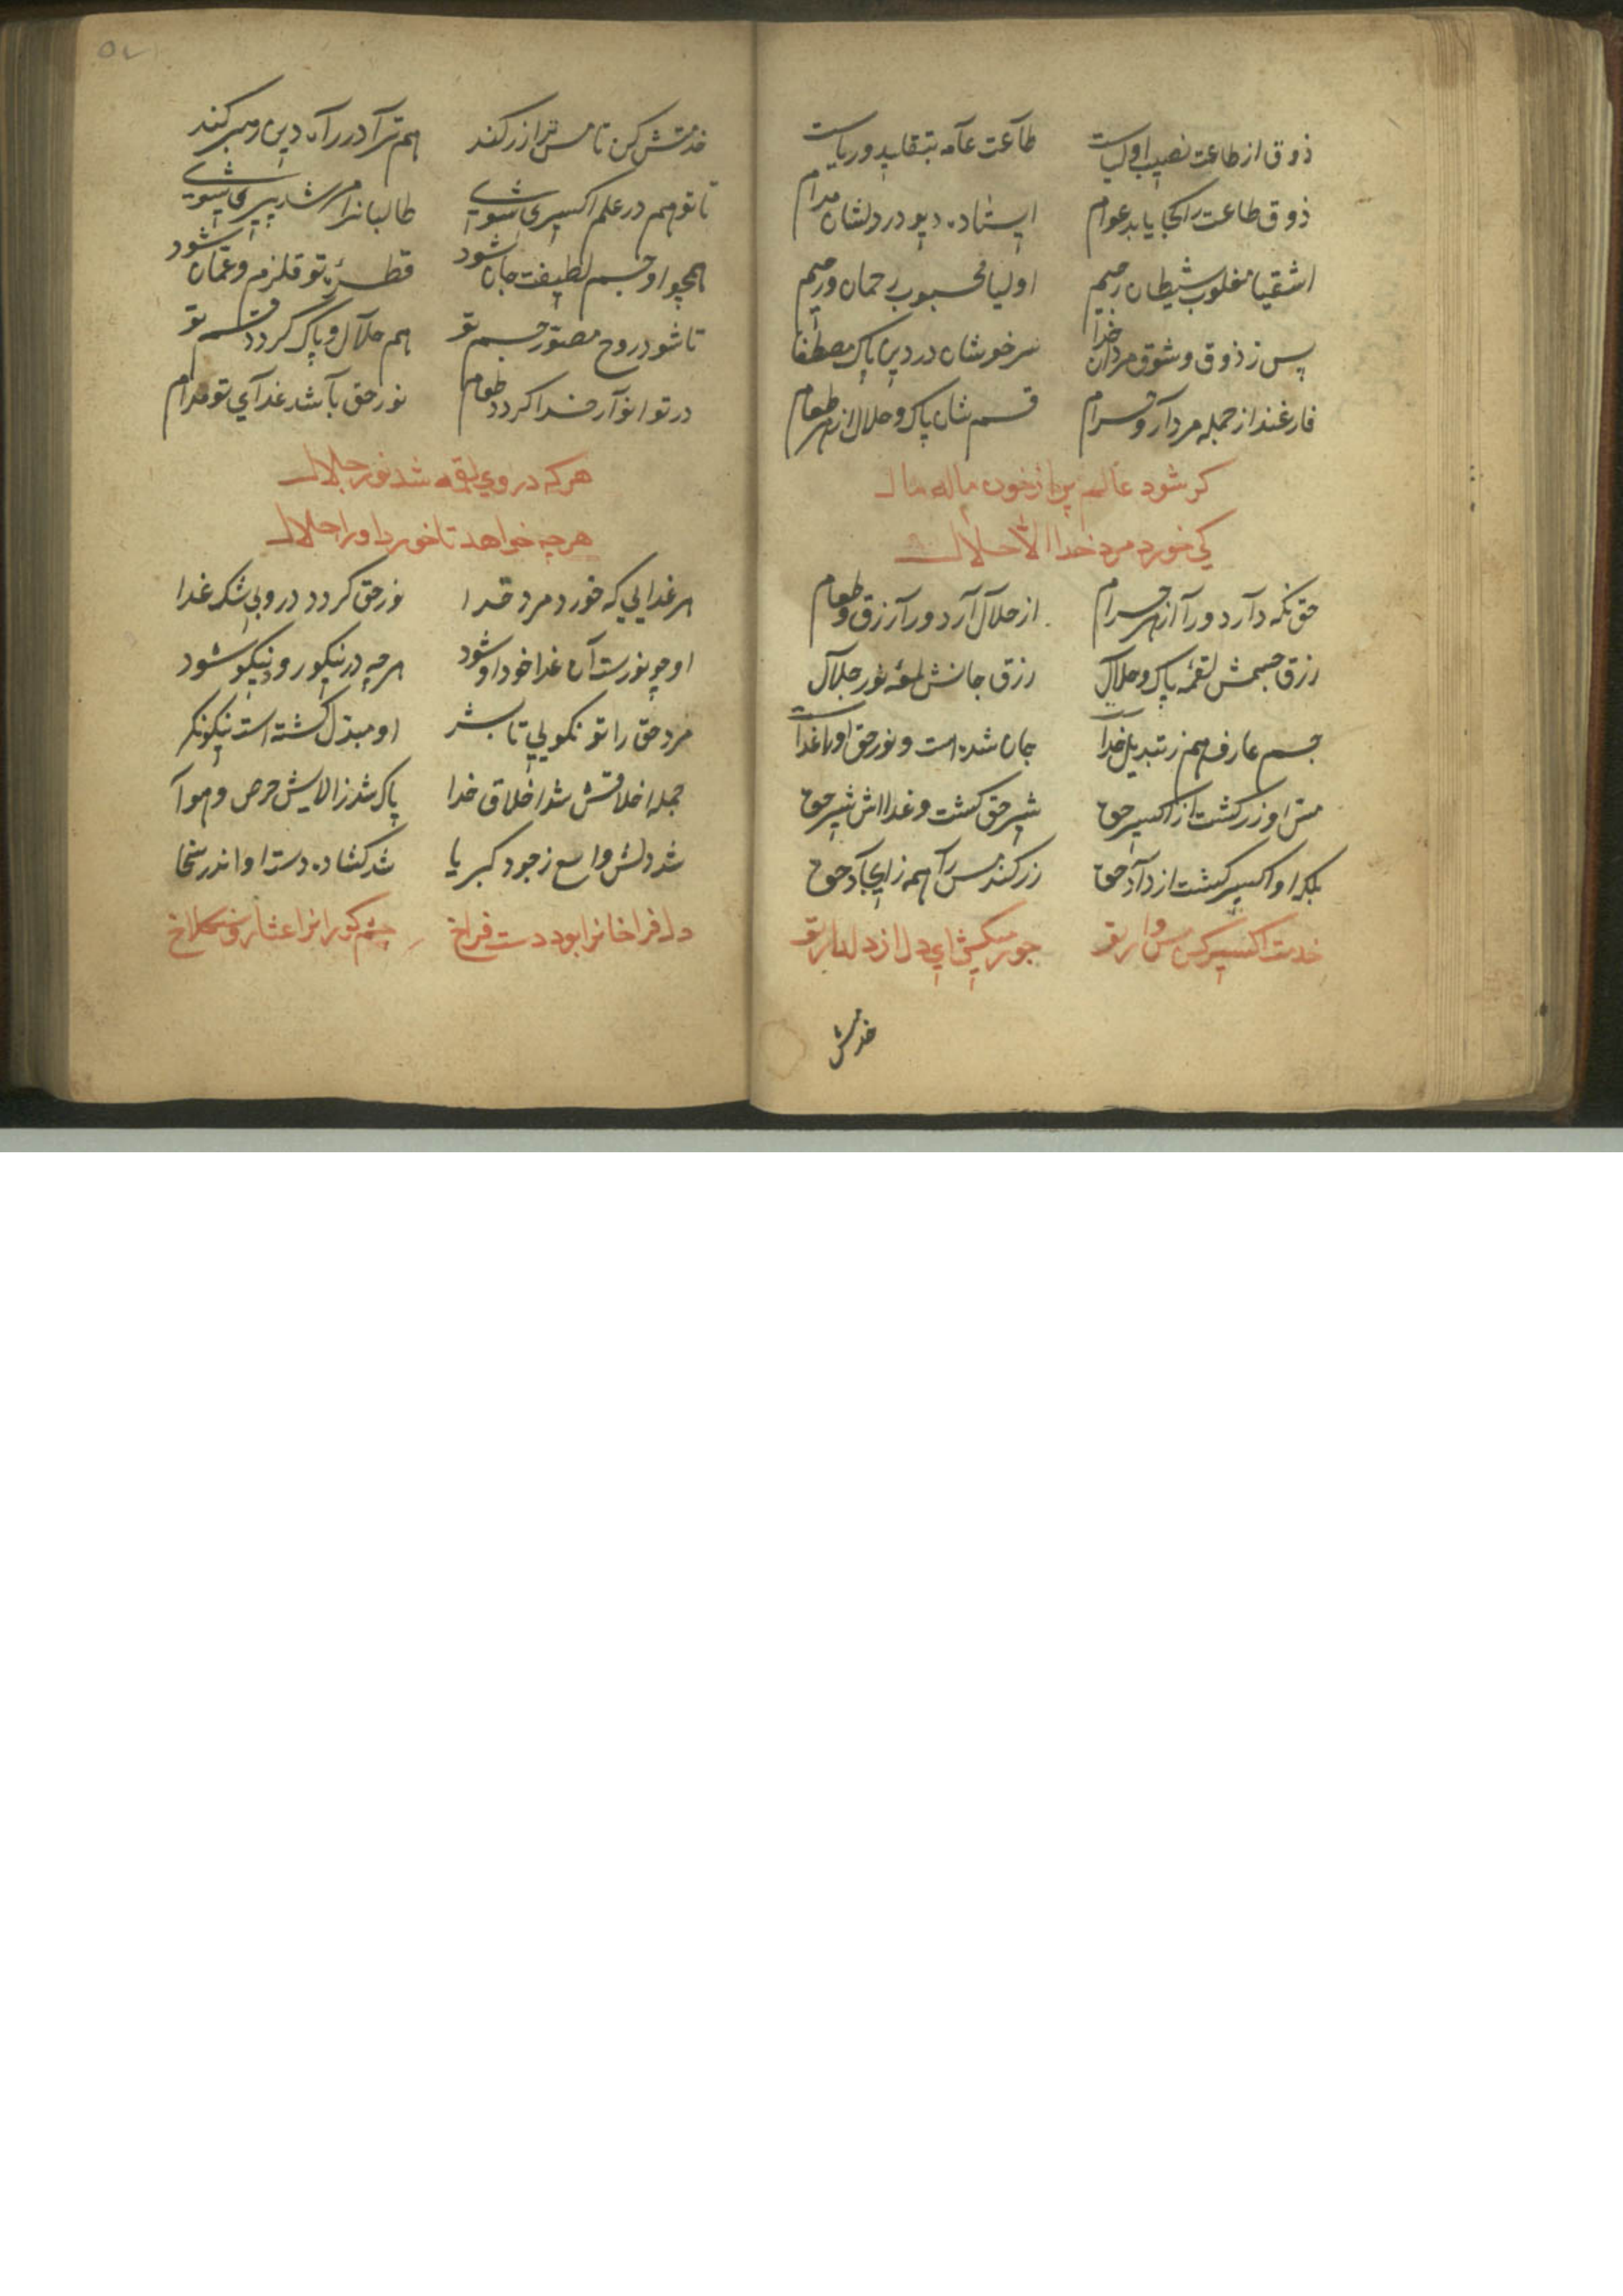 ذوق از طاعت نصیب اولیاست طاعت عامه بتقلید و ریاست
ذوق طاعت را کجا یابد عوام ایستاده دیو در دلشان مدام
اشقیا مغلوب شیطان رجیم اولیا محبوب رحمان و رحیم
پس ز ذوق و شوق مردان خدا سرخوشان در دین پاک مصطفا
فارغند از جمله مردار و حرام قسم شان پاک و حلال از هر طعام
کر شود عالم پر از خون مال مال
کی خورد مرد خدا الا حلال
حق نکه دارد ورا از هر حرام از حلال آرد ورا رزق و طعام
رزق جسمش لقمۀ پاک و حلال رزق جانش لمعۀ نور جلال
جسم عارف هم ز تبدیل خدا جان شده است و نور حق او را غدا
مس او زر کشت از اکسیر حق شیر حق کشت و غدااش شیر حق
بلکه او اکسیر کشت از داد حق زر کند مس را همه ز ایجاد حق
خدمت اکسیر کن مس وار تو جور میکش ای دل از دلدار تو
خدمتش
خدمتش کن تا مس ترا زر کند هم ترا در راه دین رهبر کند
تا تو هم در علم اکسیری شوی طالبانرا مرشد پیری شوی
همچو او جسم لطیفت جان شود قطرۀ تو قلزم و عمان شود
تا شود روح مصور جسم تو هم حلال و پاک کردد قسم تو
در تو انوار خدا کردد طعام نور حق باشد غدای تو مدام
هر که در وی لقمه شد نور جلال
هر چه خواهد تا خورد او را حلال
هر غدایی که خورد مرد خدا نور حق کردد در و بی شک غدا
او چو نورست آن غدا خود او شود هر چه در نیکو رود نیکو شود
مرد حق را تو نکویی تا بشر او مبدل کشته است نیکو نکر
جمله اخلاقش شد اخلاق خدا پاک شد ز الایش حرص و هوا
شد دلش واسع ز جود کبریا شد کشاده دست او اندر سخا
دل فراخانرا بود دست فراخ چشم کورانرا عثار سنکلاخ